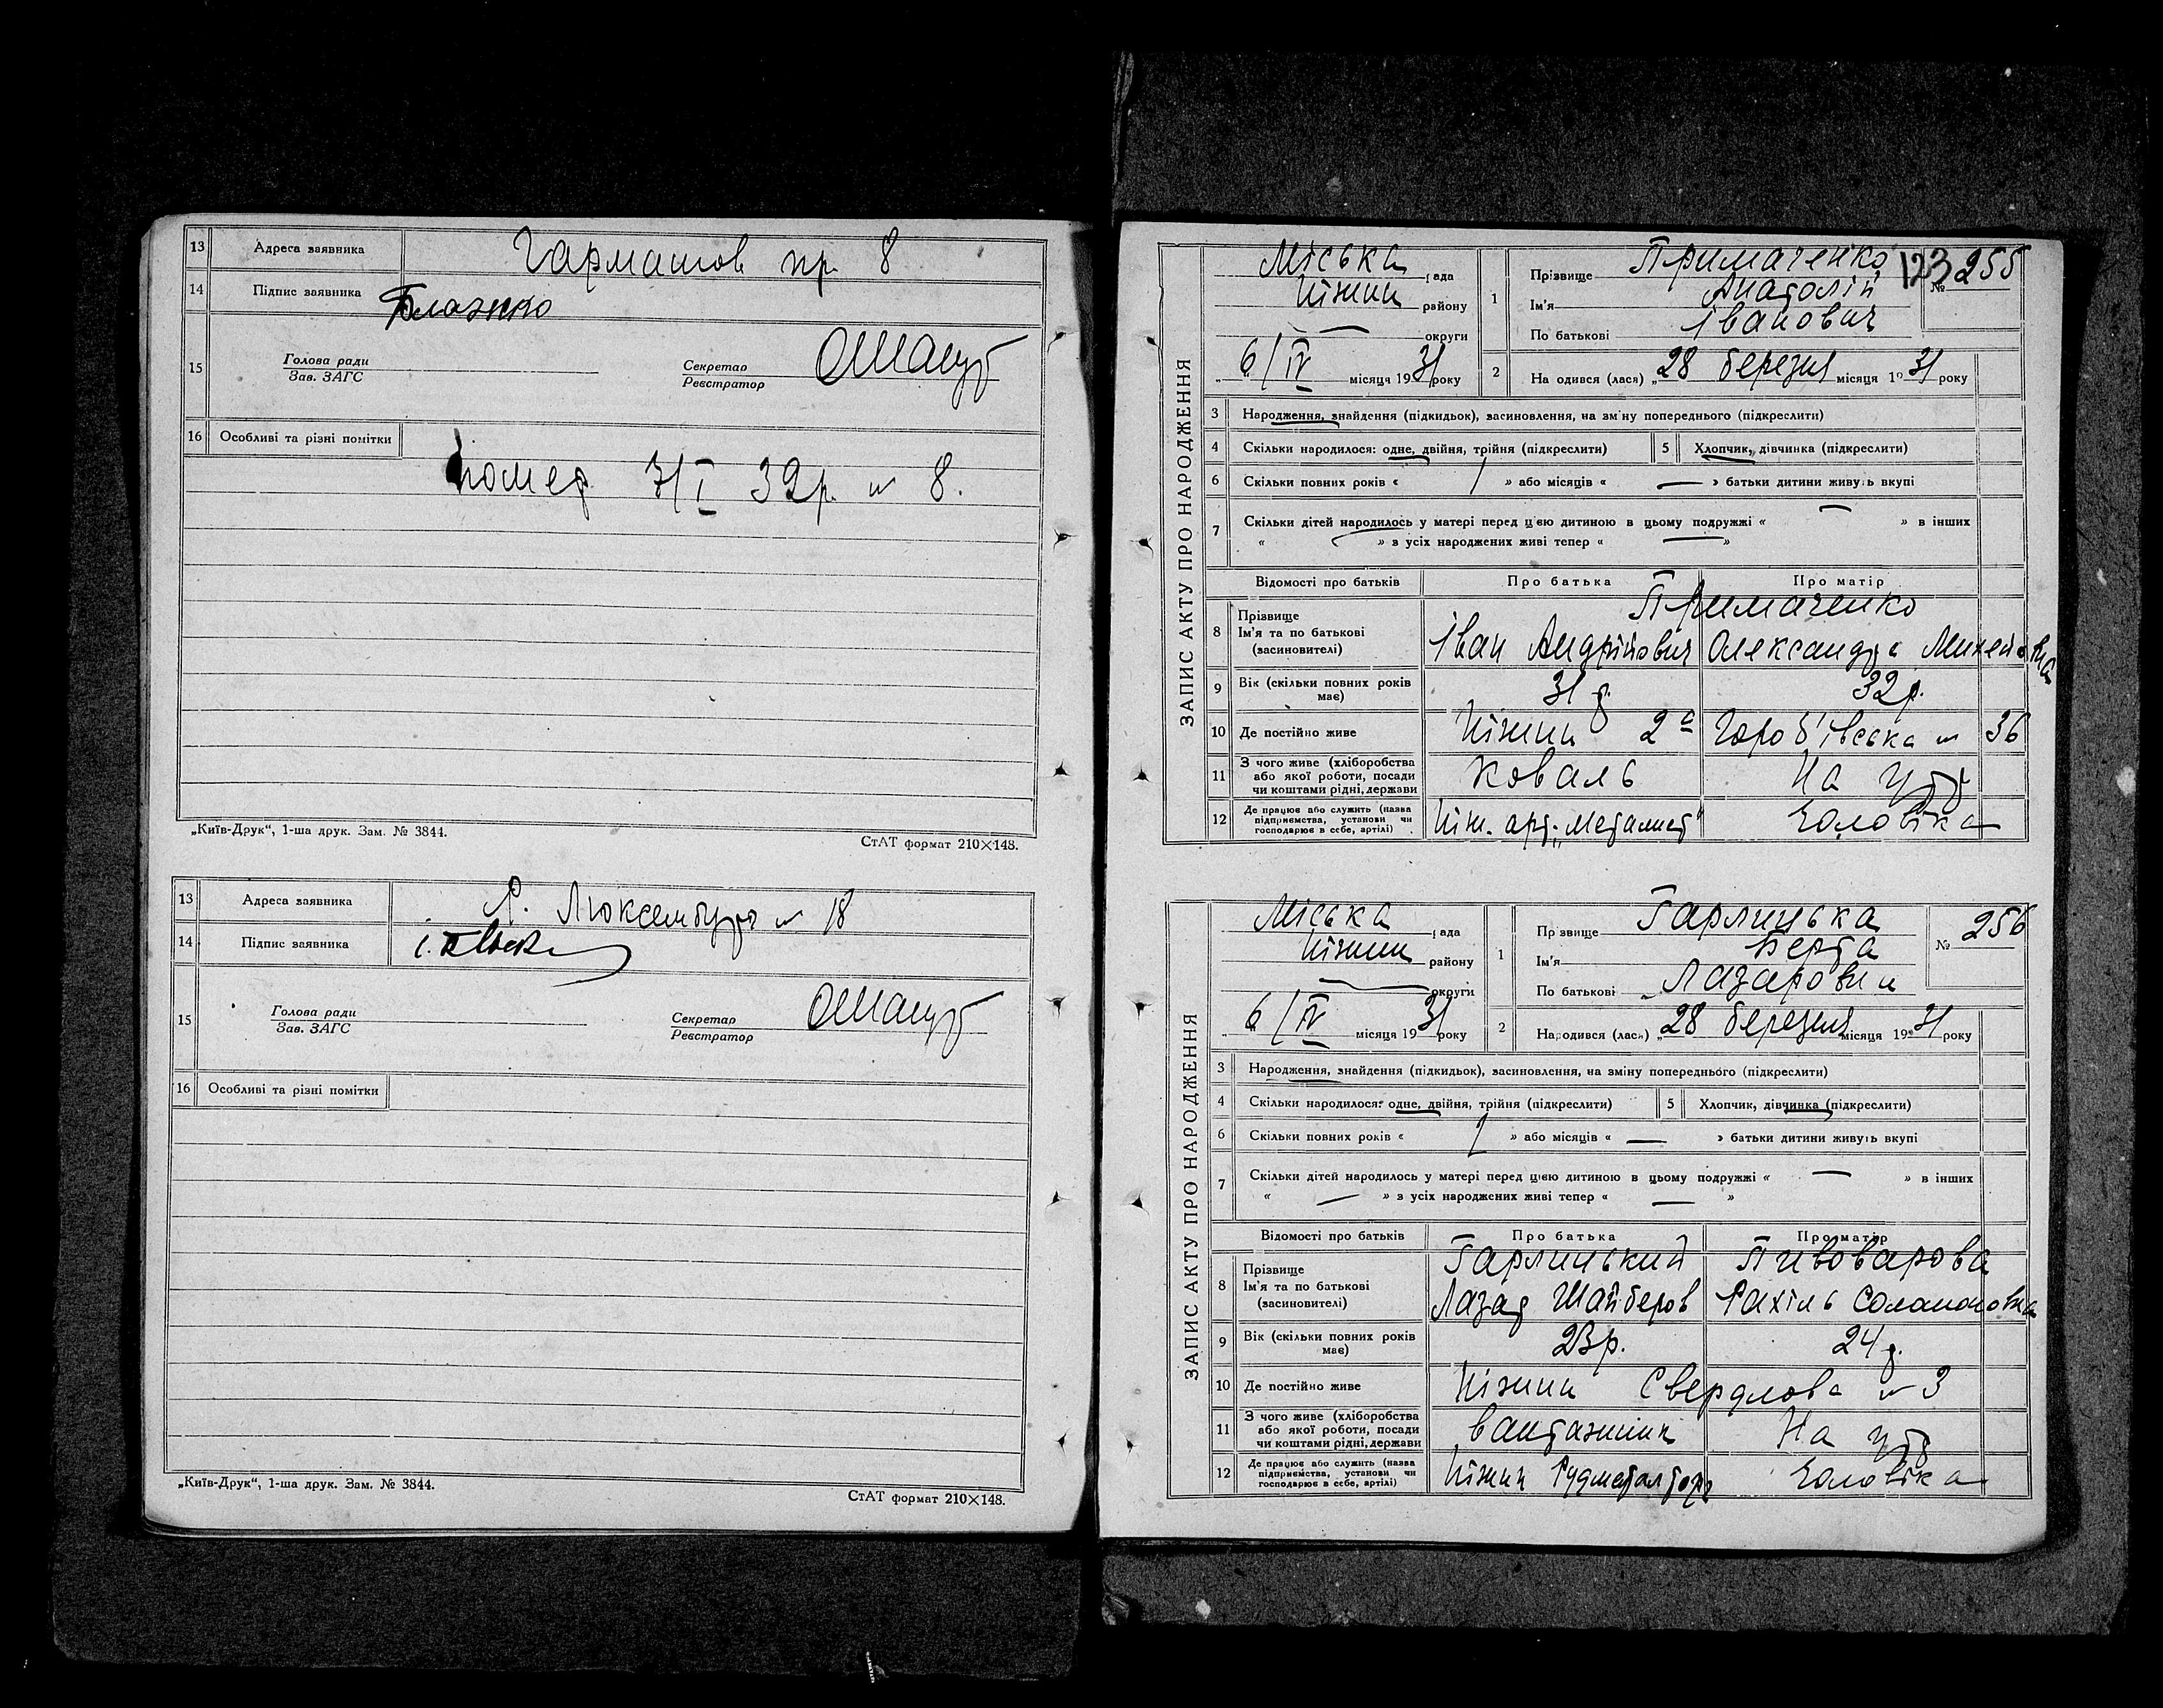 13 Адреса заявника Гарматов пр. 8
14 Підпис заявника Блажко
15 Голова ради Секретар
Зав. ЗАГС Реєстратор
16 Особливі та різні помітки
помер 7/I 32р. № 8.
„Київ-Друк“, 1-ша друк. Зам. № 3844.
СтАТ формат 210×148.
13 Адреса заявника Р. Люксембург № 18
14 Підпис заявника
15 Голова ради Секретар
Зав. ЗАГС Реєстратор
16 Особливі та різні помітки
„Київ-Друк“, 1-ша друк. Зам. № 3844.
СтАТ формат 210×148.
ЗАПИС АКТУ ПРО НАРОДЖЕННЯ
123
Міська рада
Ніжин району
— округи
„ 6/IV місяця 1931 року
1 Прізвище Примаченко № 255
Ім'я Анатолій
По батькові Іванович
2 Народився (лася) „ 28 березня місяця 1931 року
3 Народження, знайдення (підкидьок), засиновлення, на зміну попереднього (підкреслити)
4 Скільки народилося: одне, двійня, трійня (підкреслити) 5 Хлопчик, дівчинка (підкреслити)
6 Скільки повних років « 1 » або місяців « — » батьки дитини живуть вкупі
7 Скільки дітей народилось у матері перед цією дитиною в цьому подружжі « — » в інших
« — » з усіх народжених живі тепер « — »
Відомості про батьків Про батька Про матір
8 Прізвище Примаченко
Ім'я та по батькові Іван Андрійович Олександра Михейовна
(засновителі)
9 Вік (скільки повних років має) 31 р. 32 р.
10 Де постійно живе Ніжин 2а Гороб'ївська № 36
11 З чого живе (хліборобства Коваль На утр
або якої роботи, посади
чи коштами рідні, держави
12 Де працює або служить (назва Ніж. арт. „Металист“ Чоловіка
підприємства, установи чи
господарює в себе, артілі)
ЗАПИС АКТУ ПРО НАРОДЖЕННЯ
Міська рада
Ніжин району
— округи
„ 6/IV місяця 1931 року
1 Прізвище Гарлинська № 256
Ім'я Берта
По батькові Лазаровна
2 Народився (лася) „ 28 березня місяця 1931 року
3 Народження, знайдення (підкидьок), засиновлення, на зміну попереднього (підкреслити)
4 Скільки народилося: одне, двійня, трійня (підкреслити) 5 Хлопчик, дівчинка (підкреслити)
6 Скільки повних років « 1 » або місяців « — » батьки дитини живуть вкупі
7 Скільки дітей народилось у матері перед цією дитиною в цьому подружжі « — » в інших
« — » з усіх народжених живі тепер « — »
Відомості про батьків Про батька Про матір
8 Прізвище Гарлинський Пивоварова
Ім'я та по батькові Лазар Шайберов Рахіль Соломоновна
(засновителі)
9 Вік (скільки повних років має) 23 р. 24 р.
10 Де постійно живе Ніжин Свердлова № 3
11 З чого живе (хліборобства Вантажник На утр
або якої роботи, посади
чи коштами рідні, держави
12 Де працює або служить (назва Ніжин Рудметалторг Чоловіка
підприємства, установи чи
господарює в себе, артілі)